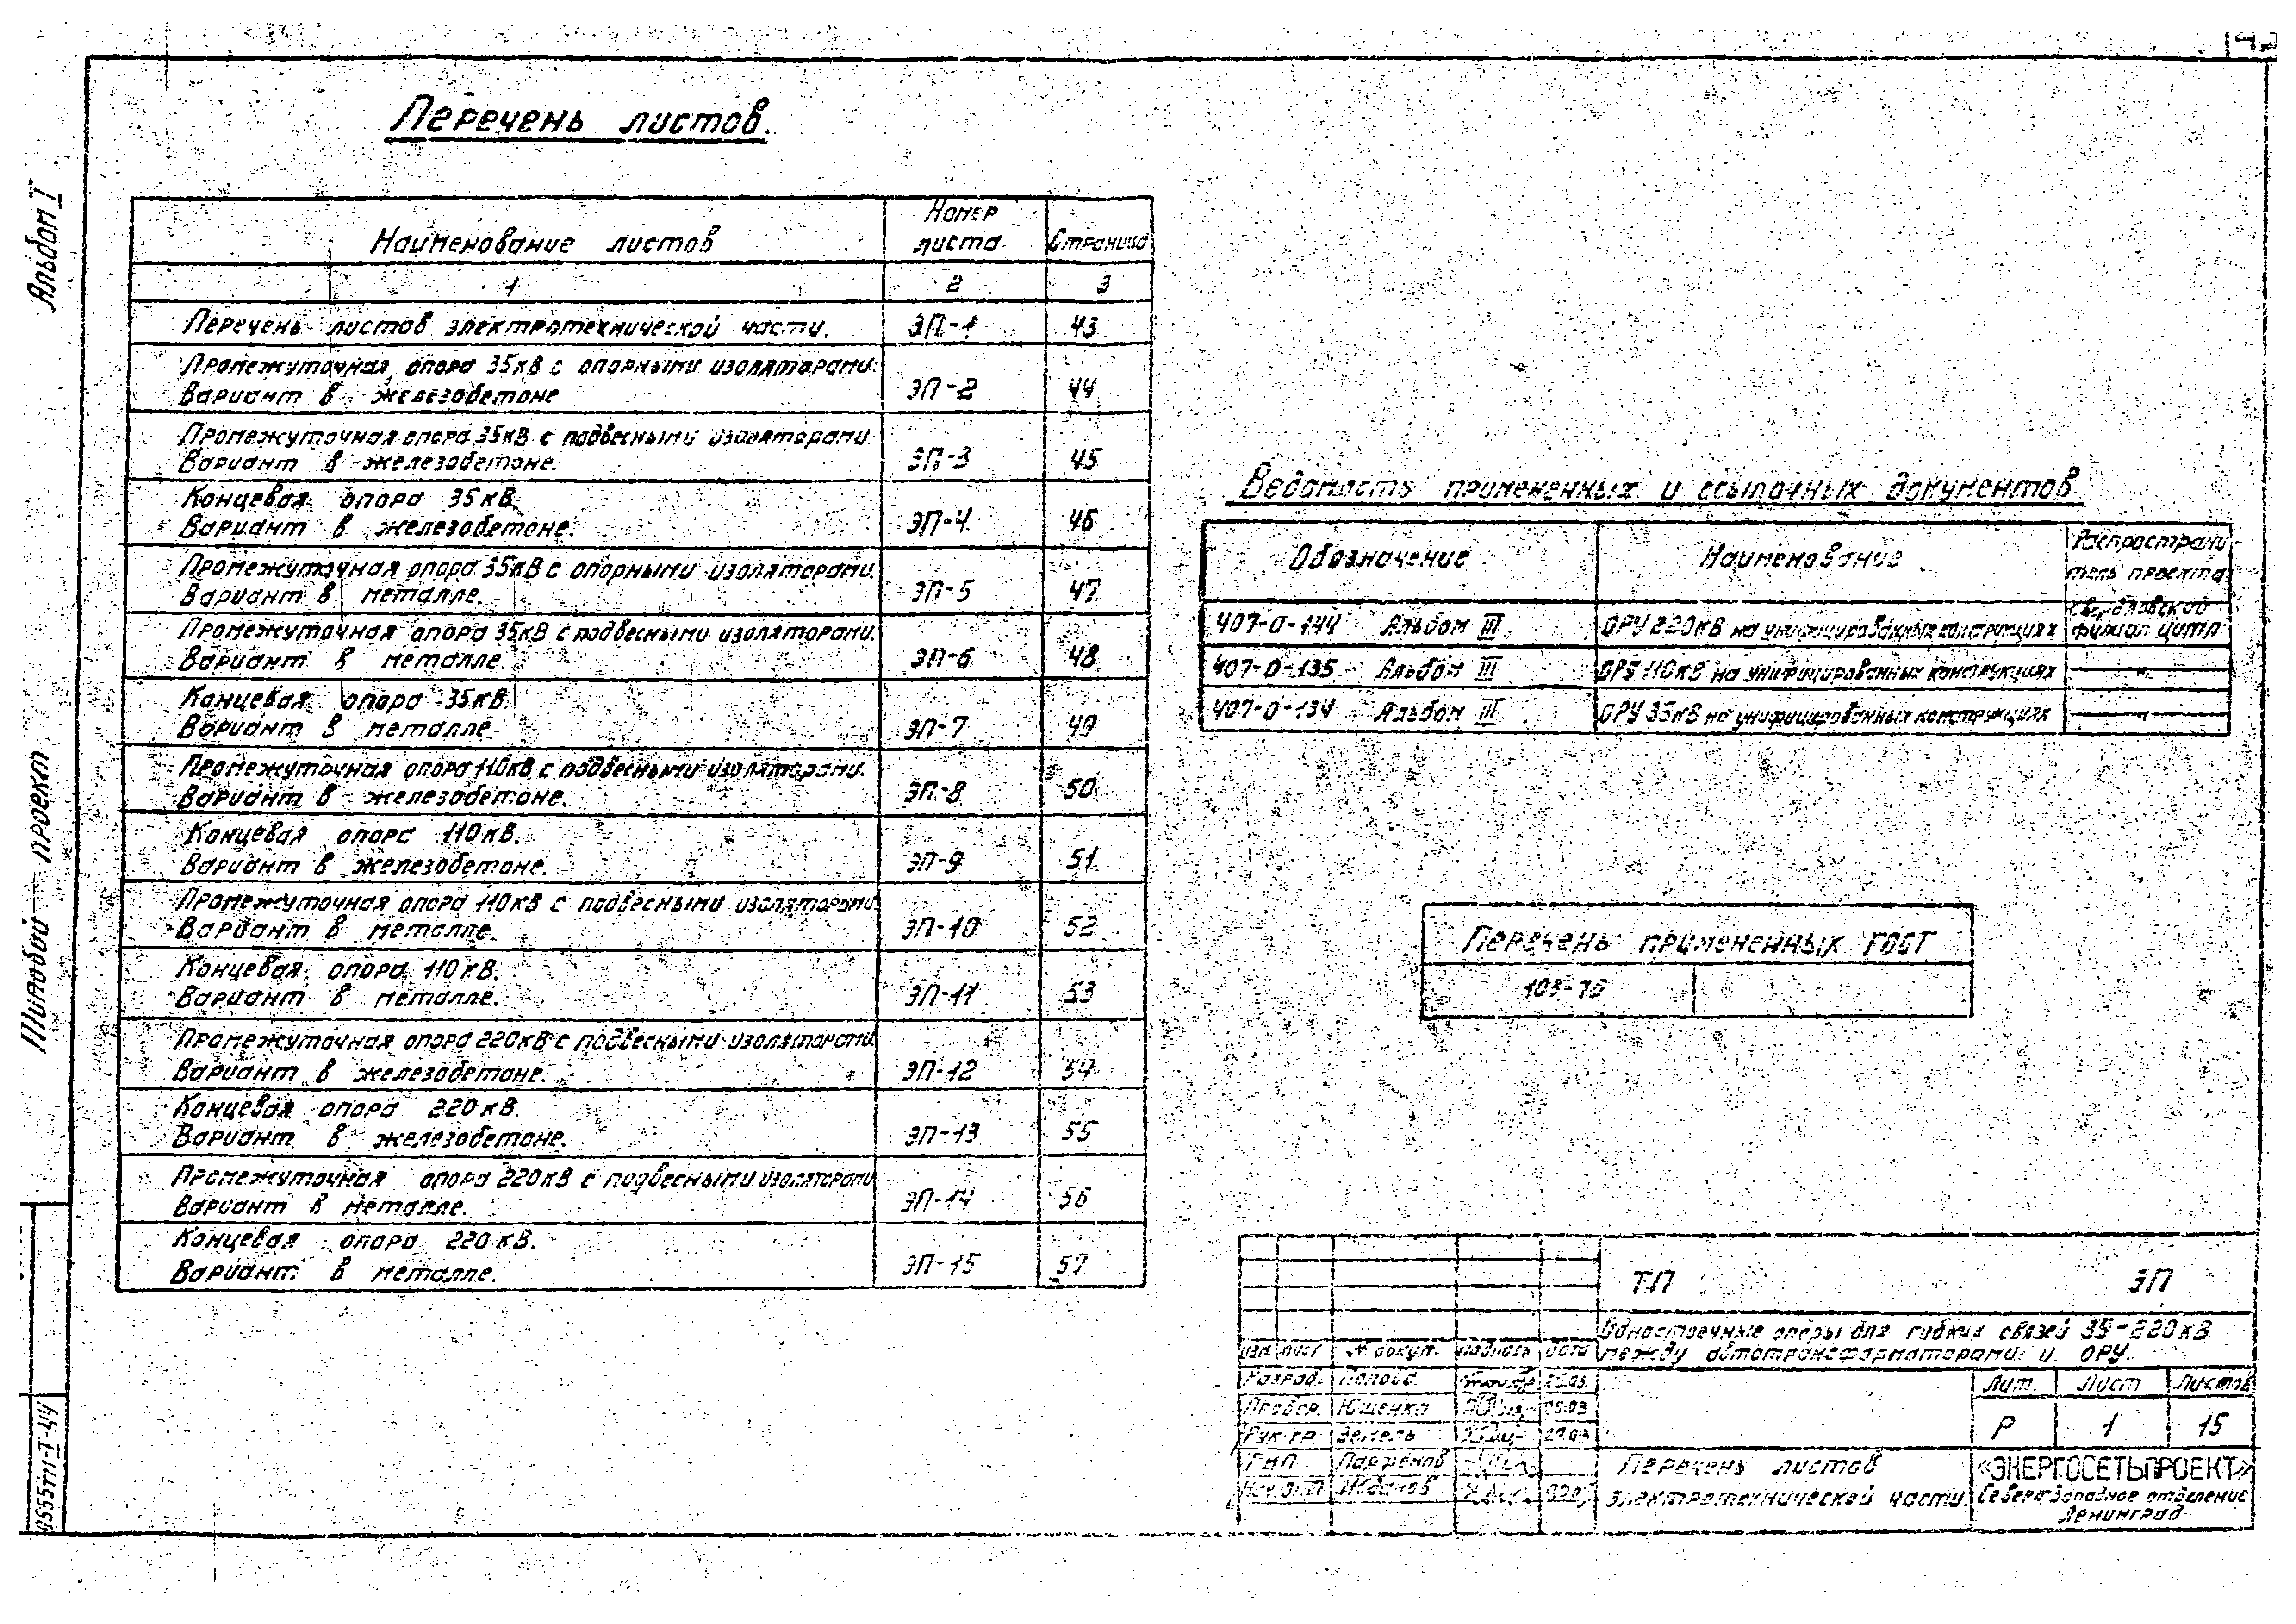 Альбом I
Типовой проект
9555тм-I-44
Перечень листов.
Наименование листов
Номер
листа
Страница
1 2 3
Перечень листов электротехнической части. ЭП-1 43
Промежуточная опора 35кВ с опорными изоляторами.
Вариант в железобетоне ЭП-2 44
Промежуточная опора 35кВ с подвесными изоляторами.
Вариант в железобетоне. ЭП-3 45
Концевая опора 35кВ.
Вариант в железобетоне. ЭП-4 46
Промежуточная опора 35кВ с опорными изоляторами.
Вариант в металле. ЭП-5 47
Промежуточная опора 35кВ с подвесными изоляторами.
Вариант в металле ЭП-6 48
Концевая опора 35кВ.
Вариант в металле. ЭП-7 49
Промежуточная опора 110кВ с подвесными изоляторами.
Вариант в железобетоне. ЭП-8 50
Концевая опора 110кВ.
Вариант в железобетоне. ЭП-9 51
Промежуточная опора 110кВ с подвесными изоляторами.
Вариант в металле. ЭП-10 52
Концевая опора 110кВ.
Вариант в металле. ЭП-11 53
Промежуточная опора 220кВ с подвесными изоляторами
Вариант в железобетоне. ЭП-12 54
Концевая опора 220кВ.
Вариант в железобетоне. ЭП-13 55
Промежуточная опора 220кВ с подвесными изоляторами
Вариант в металле. ЭП-14 56
Концевая опора 220кВ.
Вариант в металле. ЭП-15 57
Ведомость примененных и ссылочных документов
Обозначение Наименование
Распространи-
тель проекта
407-0-144 Альбом III ОРУ 220кВ на унифицированных конструкциях
Свердловский
филиал ЦИТП
407-0-135 Альбом III ОРУ 110кВ на унифицированных конструкциях — " —
407-0-134 Альбом III ОРУ 35кВ на унифицированных конструкциях — " —
Перечень примененных ГОСТ
103-76
ТП ЭП
Одностоечные опоры для гибких связей 35-220кВ
между автотрансформаторами и ОРУ.
Изм. Лист № докум. Подпись Дата
Разраб. Попова
Провер. Ющенко 05.03
Рук. гр. Земель 27.03
ГИП Парфенов
Нач. отд. Жданов
Лит. Лист Листов
Р 1 15
Перечень листов
электротехнической части
«ЭНЕРГОСЕТЬПРОЕКТ»
Северо-Западное отделение
Ленинград